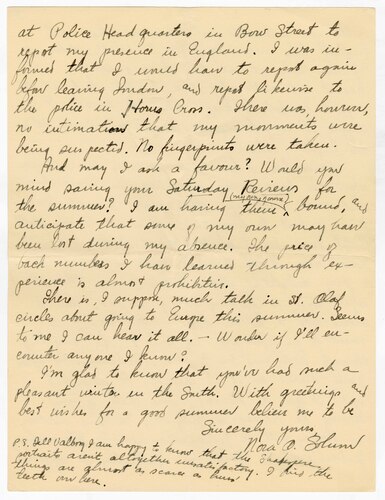 at Police Headquarters in Bow Street to
report my presence in England. I was in-
formed that I would have to report again
before leaving London, and report likewise to
the police in Cross. There was, however,
no intimation that my movements were
being suspected. No fingerprints were taken.
And may I ask a favour? Would you
mind saving your Saturday Reviews for
the summer? I am having them (my own) bound, and
anticipate that some of my own may have
been lost during my absence. The price of
back numbers I have learned through ex-
perience is almost prohibitive.
There is, I suppose, much talk in St. Olaf
circles about going to Europe this summer. Seems
to me I can hear it all. — Wonder if I'll en-
counter anyone I know?
I'm glad to know that you've had such a
pleasant winter in the South. With greetings and
best wishes for a good summer believe me to be
Sincerely yours,
Nora O. Solum
P.S. Tell Valborg I am happy to know that the
portraits aren't altogether unsatisfactory.
things are almost as scarce as hen's
teeth over here.